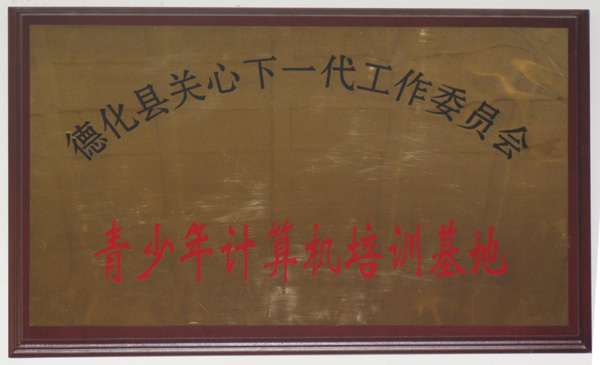 德化县关心下一代工作委员会
青少年计算机培训基地